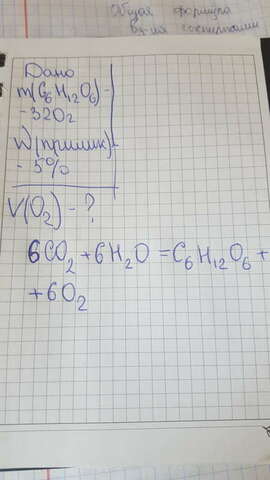 Общая формула
Дано
m(C₆H₁₂O₆)-
-320₂
W(примик)-
- 5%
V(O₂) - ?
6CO₂+6H₂O=C₆H₁₂O₆+
+6O₂